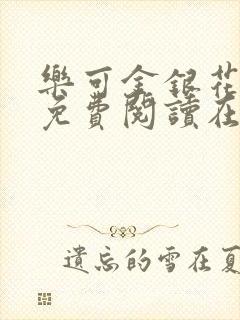 樂可金銀花
免費閱讀在
遺忘的雪在夏